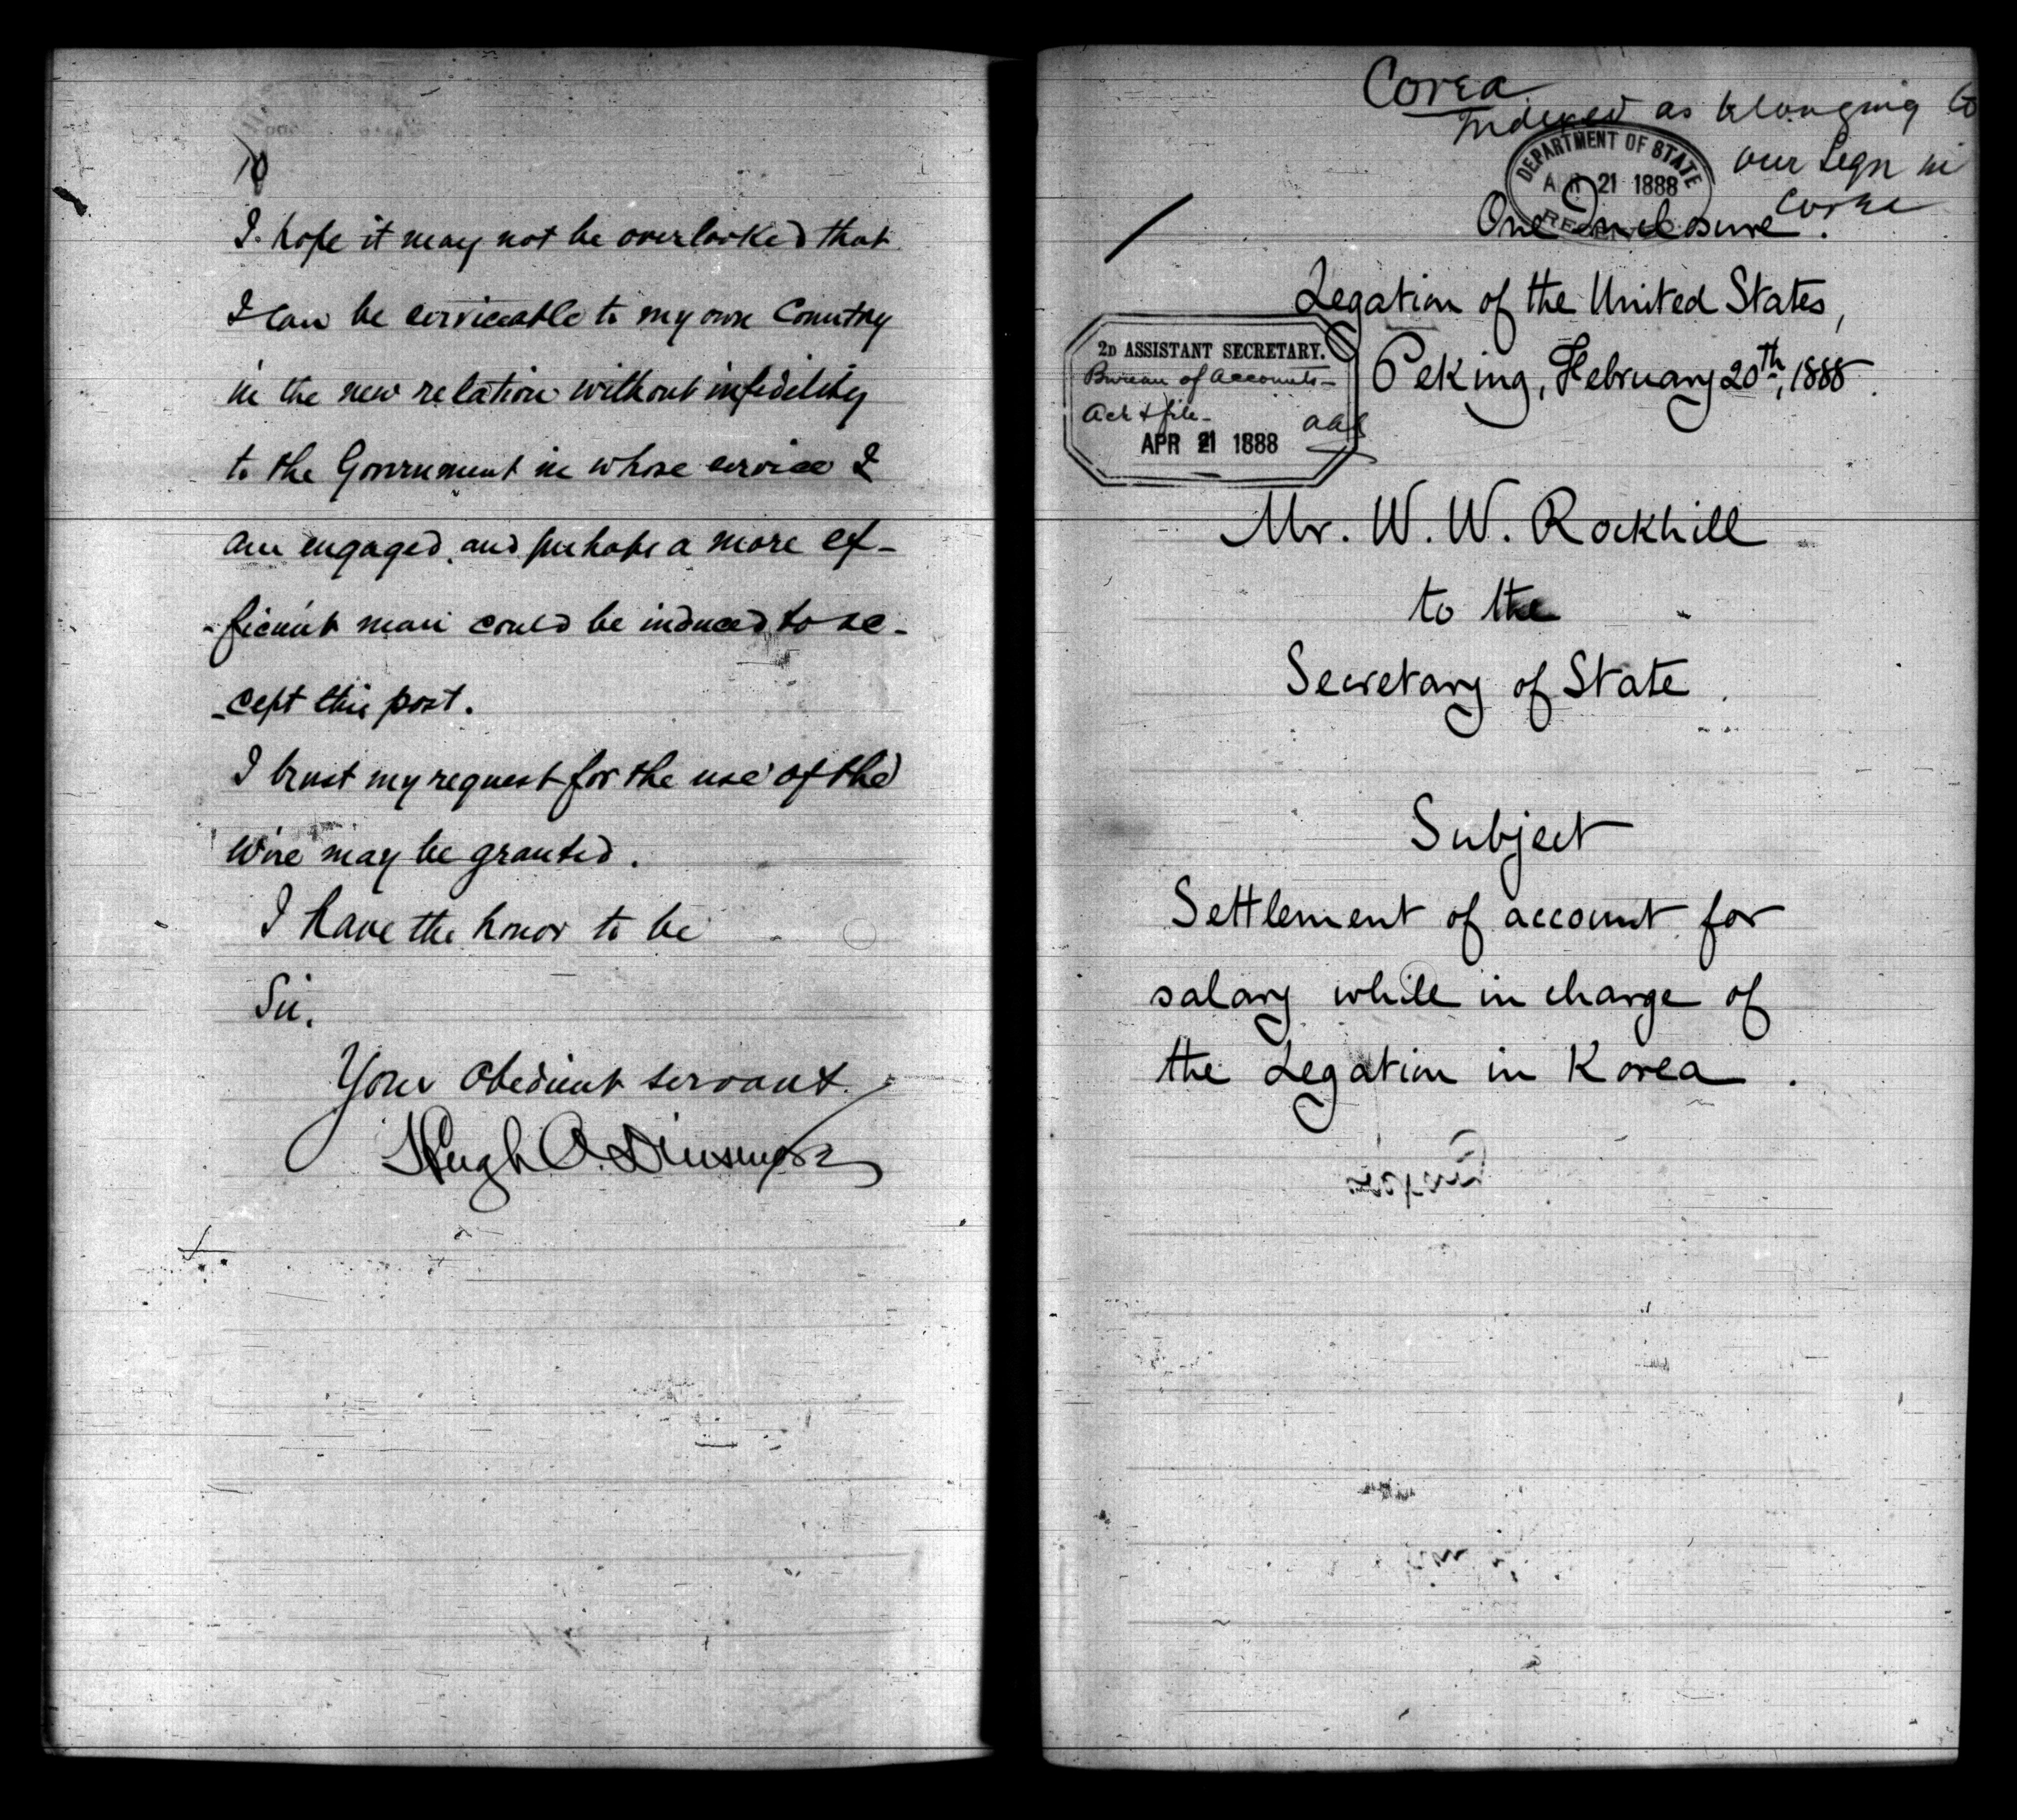 10
I hope it may not be overlooked that
I can be serviceable to my own Country
in the new relation without infidelity
to the Government in whose service I
am engaged, and perhaps a more ef-
-ficient man could be induced to ac-
-cept this post.
I trust my request for the use of the
wire may be granted.
I have the honor to be
Sir,
Your obedient servant
Hugh A. Dinsmore
Corea
Indexed as belonging to
our Legn in
Corea
DEPARTMENT OF STATE
APR 21 1888
RECEIVED
One Inclosure.
Legation of the United States,
Peking, February 20th, 1888.
2D ASSISTANT SECRETARY.
Bureau of Accounts-
Ack & file-
aaa
APR 21 1888
Mr. W. W. Rockhill
to the
Secretary of State.
Subject
Settlement of account for
salary while in charge of
the Legation in Korea.